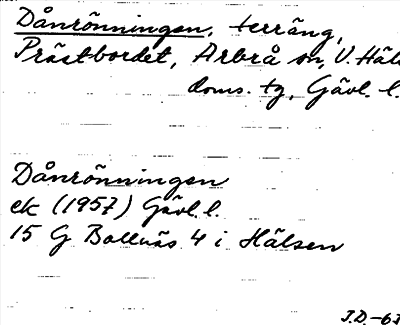 Dånrönningen, terräng,
Prästbordet, Arbrå sn, V. Häls
doms. tg, Gävl. l.
Dånrönningen
ek (1957) Gävl. l.
15 G Bollnäs 4 i Hälsen
J.D.-63